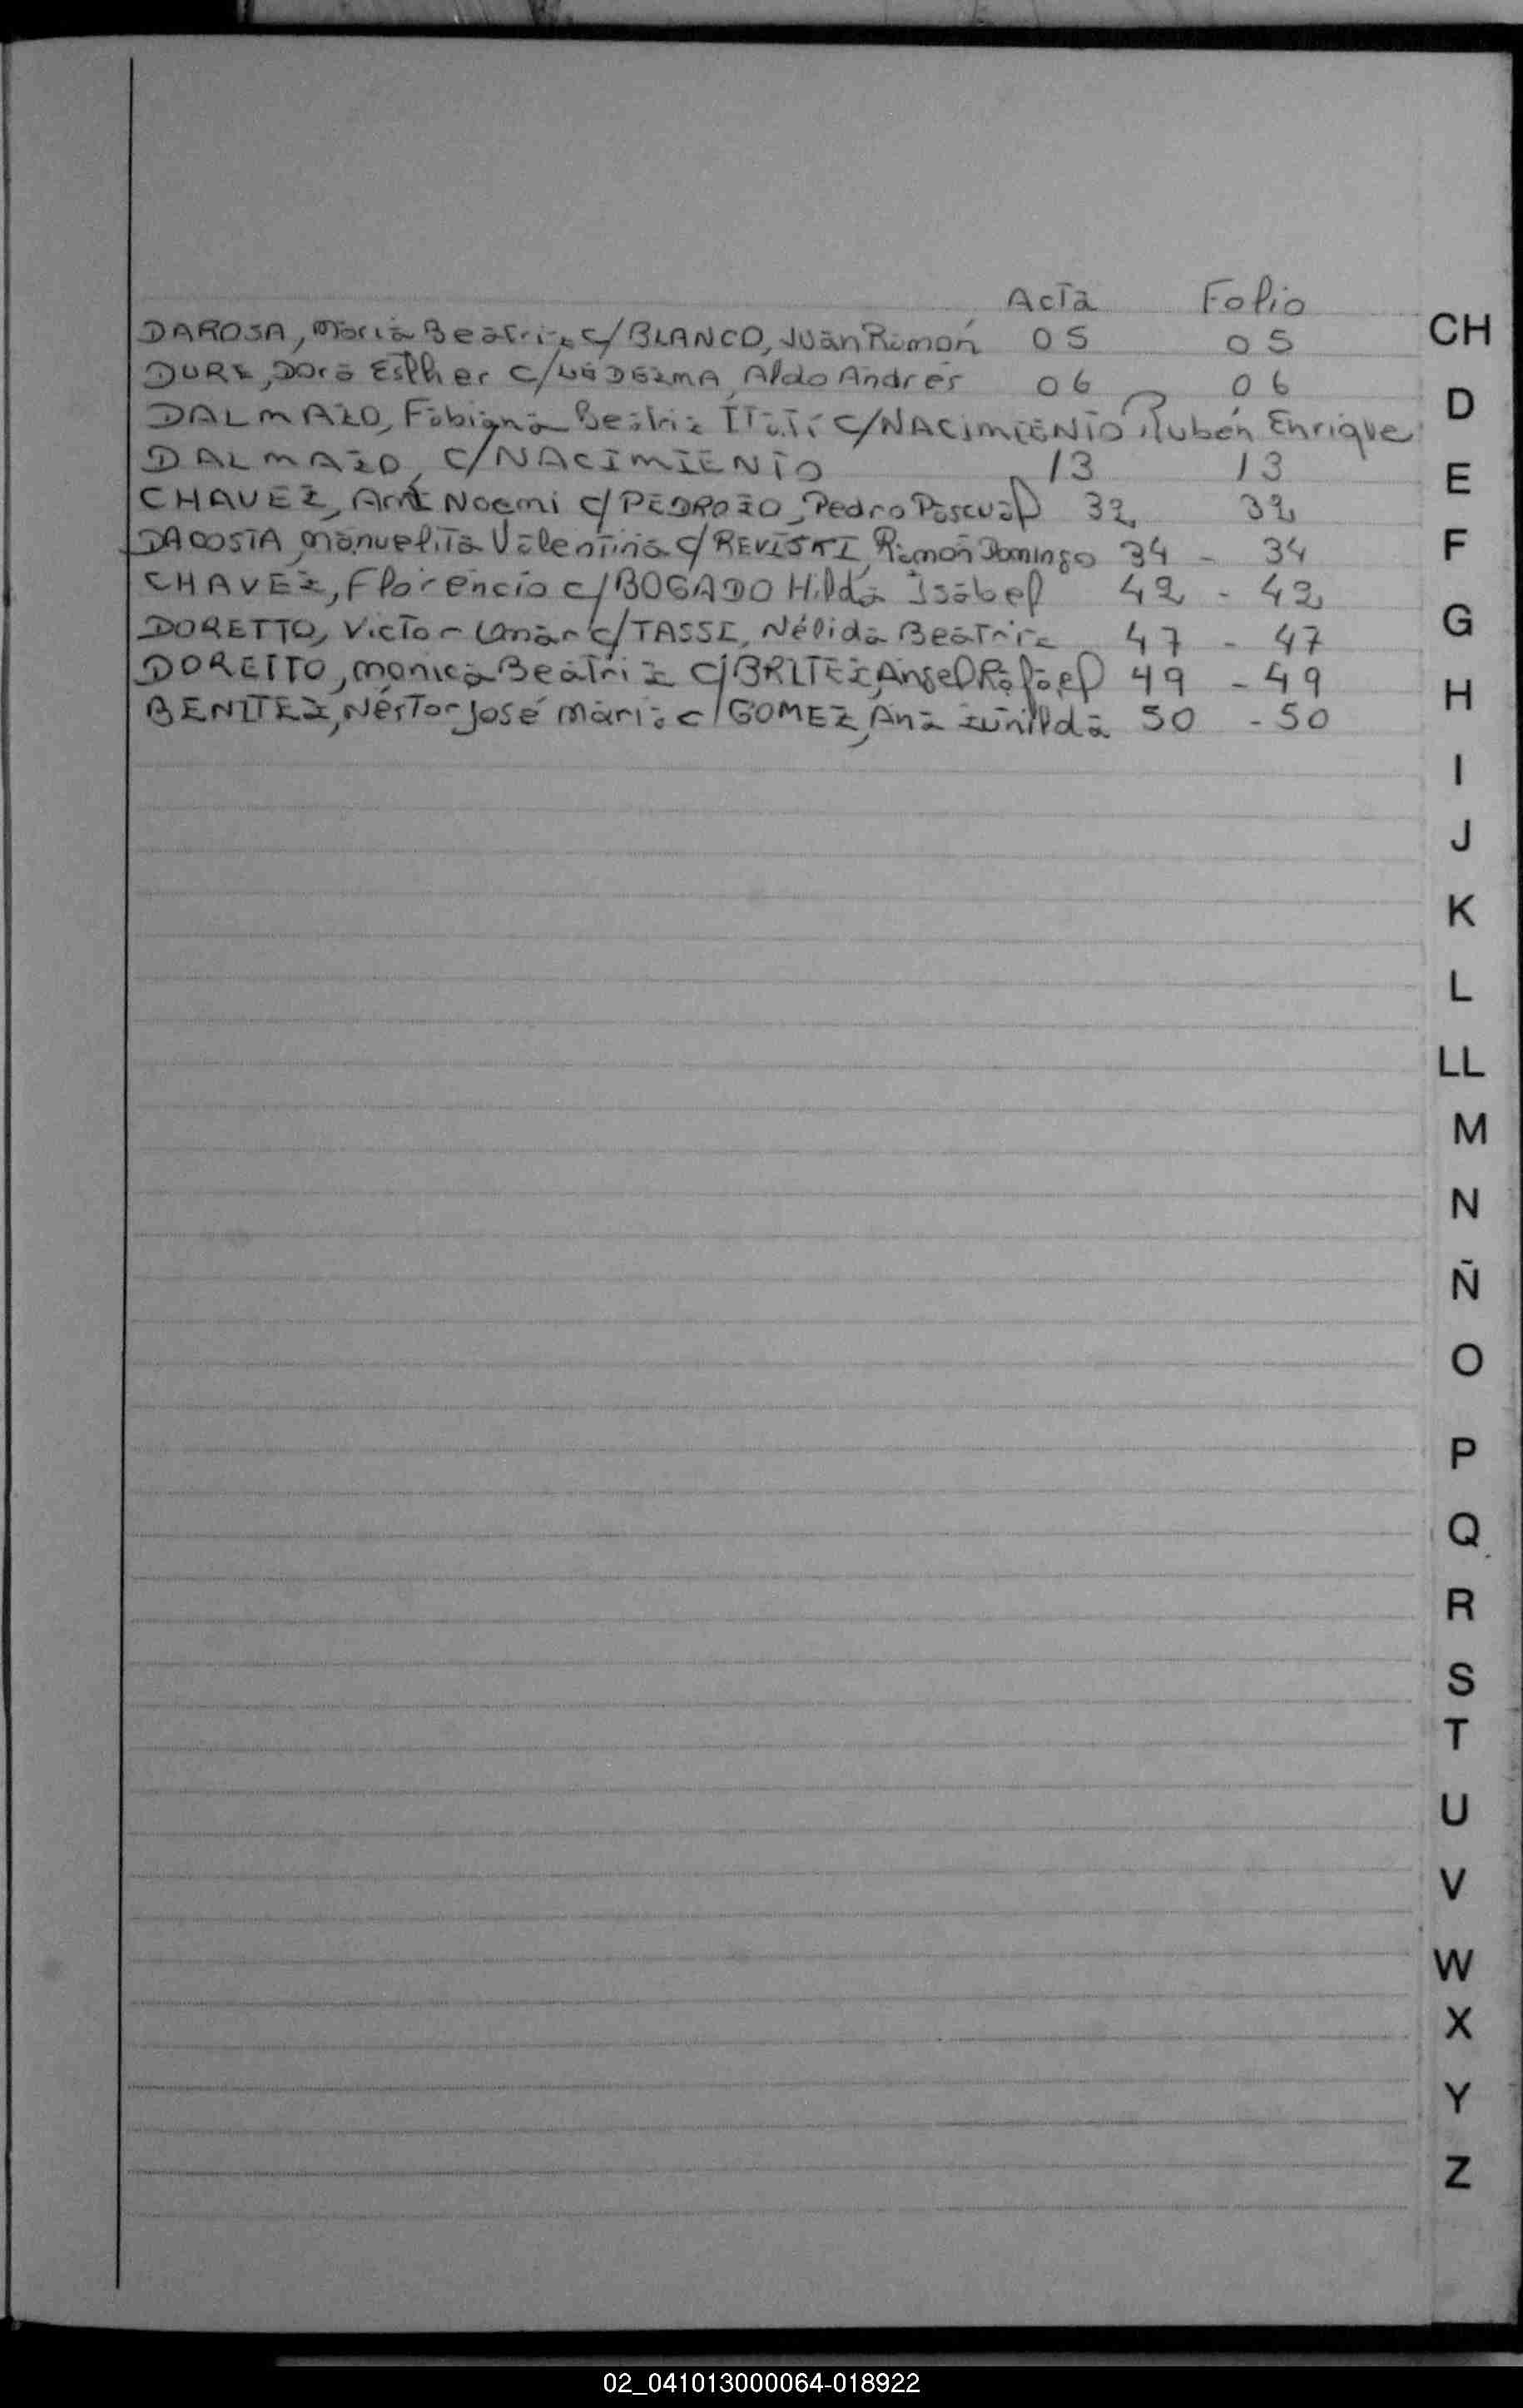 Acta Folio
DAROSA, María Beatriz c/ BLANCO, Juan Ramón 05 05
DURE, Dora Esther c/ LEDEZMA, Aldo Andrés 06 06
DALMAZO, Fabiana Beatriz Itatí c/ NACIMIENTO Rubén Enrique
DALMAZO, c/ NACIMIENTO 13 13
CHAVEZ, Noemi c/ PEDROZO, Pedro Pascual 32 32
DACOSTA, Manuelita Valentina c/ REVISKI, Ramón Domingo 34 - 34
CHAVEZ, Florencio c/ BOGADO Hilda Isabel 42 - 42
DORETTO, Victor Omar c/ TASSI, Nélida Beatriz 47 - 47
DORETTO, Monica Beatriz c/ BRITEZ, Angel Rafael 49 - 49
BENITEZ, Néstor José María c/ GOMEZ, Ana Zunilda 50 - 50
CH
D
E
F
G
H
I
J
K
L
LL
M
N
Ñ
O
P
Q
R
S
T
U
V
W
X
Y
Z
02_041013000064-018922